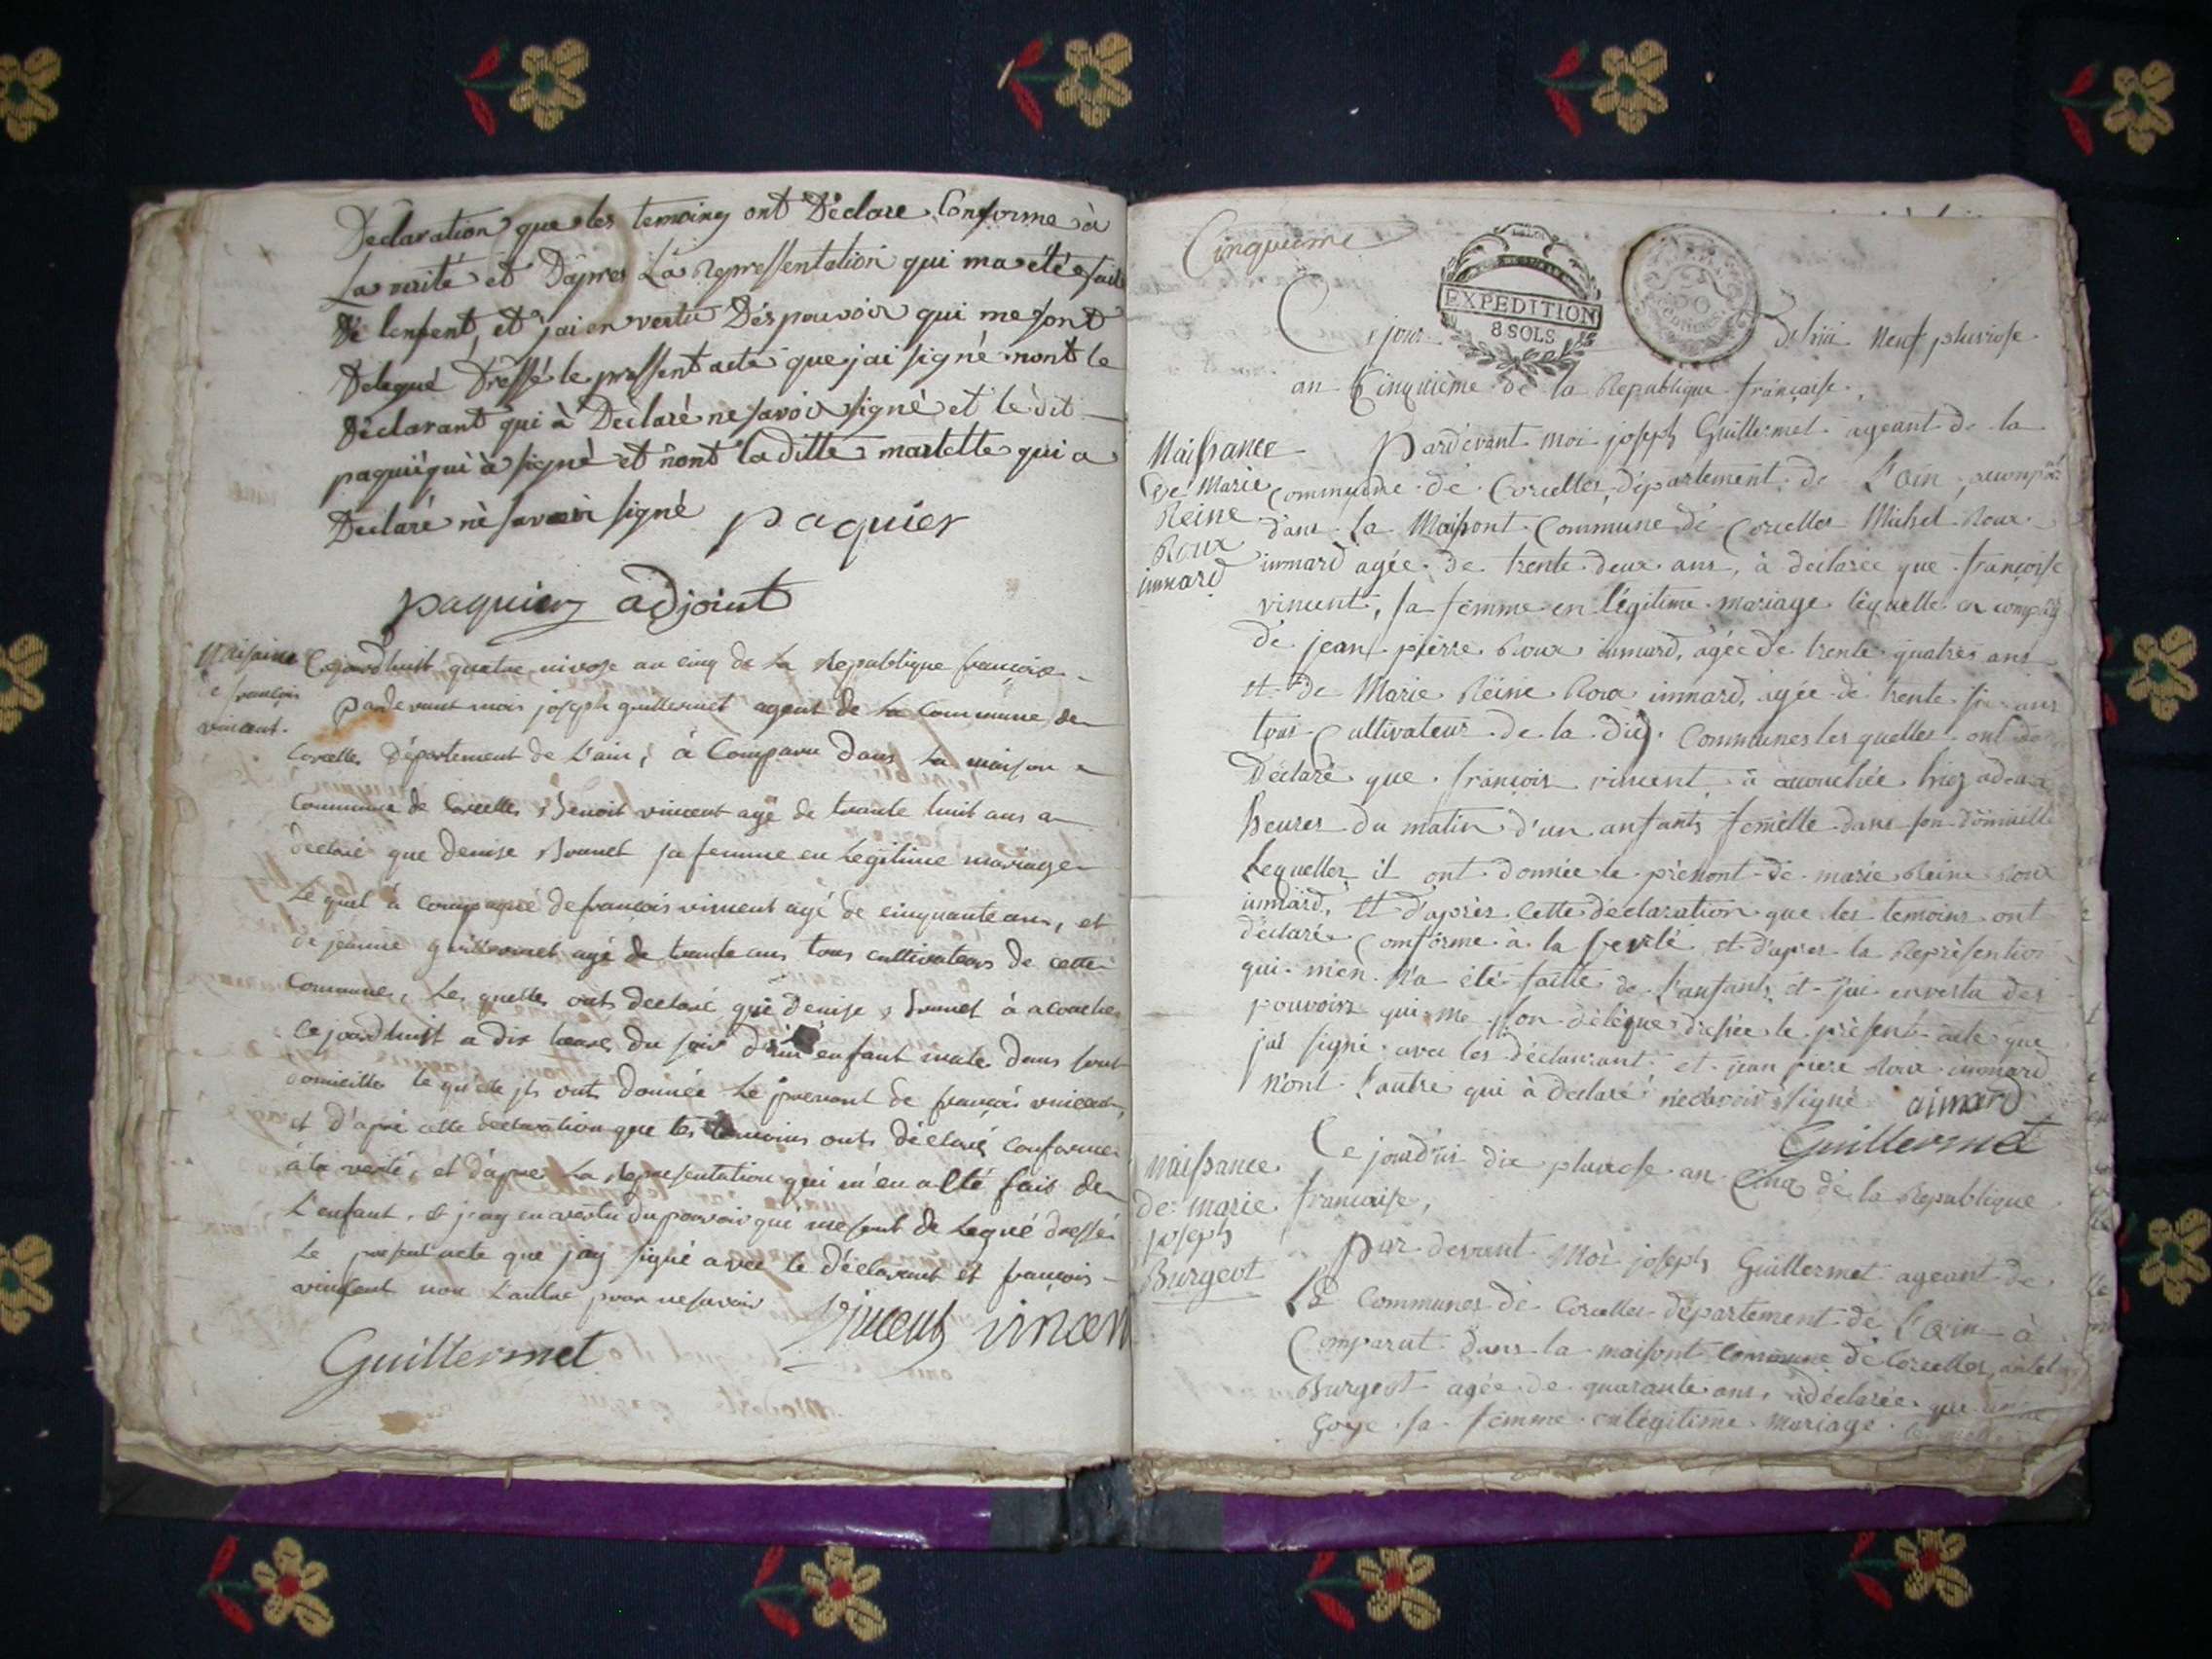 Declaration que les temoing ont Déclare Conforme à
La verité et Dâpres La Repressentation qui ma été faite
De lenfent, et j'ai en vertu Des pouvoir qui me sont
Delegué Dréssé le pressent acte que jai signé nont le
Déclarant qui à Déclaré ne savoir signé et le dit
paquié qui à signé et nont la ditte mariette qui a
Declaré nè savoir signé paquier
paquier adjoint
Naisaince
de francois
vincent.
Cejourdhuit quatre nivose an cinq de La Republique francoise
pardevant mois joseph guillermet agent de La Commune de
Corcelles Département de L'ain, à Comparu Dans La maison
Commune de Corcelles Benoit vincent agé de trante huit ans a
declaré que denise Bonnet sa femme en Legitime mariage
Le quel à compagné de francois vincent agé de cinquante ans, et
de jeanne guillermet agé de trante ans tous cultivateurs de cette
Commune, Les quelles onts declaré que denise Bonnet à acouché
Cejourdhuit a dix heures Du soir D'un enfant male Dans sont
domicille le qu'elle ils onts Donnée Le prenont de francois vincent,
et d'apré cette declaration que les temoins onts déclaré conforme
à la verité, et d'apres La Representation qui m'en a été fait de
L'enfant, et j'ay en vertu du pouvoir qui me sont de Legué dressé
Le present acte que jay signé avec le déclarant et francois
vincent non L'autre pour ne savoir Vincent vincen
Guillermet
Cinquieme
EXPEDITION
8 SOLS
50
Ce jour Dhui neuf pluviose
an Cinquième de la Republique française.
Naissance
De Marie
Reine
Roux
immard
Pardevant moi joseph Guillermet ageant de la
Commune de Corcelles, département de L'ain,
dans la Maisont Commune de Corcelles Michel Roux
immard agée de trente deux ans, à declarée que françoise
vincent, sa femme en légitime mariage lequelle
de jean pierre Roux immard, agée de trente quatres ans
et de Marie Reine Roux immard, agée de trente six ans
tous Cultivateur de la dit Communes les quelles ont
Déclaré que françois vincent à acouchée hiez a deux
heures du matin d'un anfants femelle dans son domicille
Lequelles il ont donnée le prénont de marie Reine Roux
immard, et d'après cette déclaration que les temoins ont
déclarée Comforme à la verité, et d'apres la Représention
qui m'en n'a été faitte de L'anfant, et j'ai en vertu des
pouvoirs qui me son délèque dressée le présent acte que
j'ai signé avec les déclarant, et jean piere Roux immard
n'ont l'autre qui à declaré signé aimard
Guillermet
naissance
de marie
joseph
Burgeot
Ce jourd'ui dix pluviose an Cinq de la Republique
francaise,
Par devant moi joseph Guillermet ageant de
La Communes de Corcelles département de L'ain à
Comparut dans la maisont Commune de Corcelles,
Burgeot agée de quarante ans, à déclarée que
Goye sa femme en légitime mariage